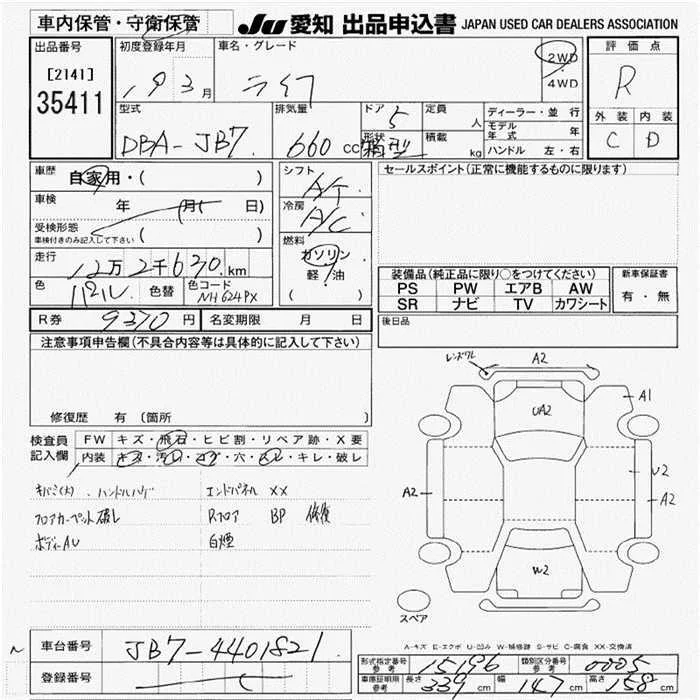 車内保管・守衛保管
JU 愛知 出品申込書 JAPAN USED CAR DEALERS ASSOCIATION
出品番号
[2141]
35411
初度登録年月
19 3 月
車名・グレード
ライフ
2WD
4WD
評価点
R
外装 内装
C D
型式
DBA-JB7
排気量
660 cc
ドア 5
形状 箱型
定員 人
積載 kg
ディーラー・並行
モデル年式 年
ハンドル 左・右
車歴
自家用・( )
車検
年 (月 日)
受検形態
車検付きのみ記入して下さい ( )
走行
12万2千630 km
色 パール 色替 色コード NH624PX
シフト
A/T
冷房
A/C
燃料
ガソリン
軽油
( )
セールスポイント(正常に機能するものに限ります)
装備品(純正品に限り○をつけてください)
PS PW エアB AW
SR ナビ TV カワシート
新車保証書
有・無
後日品
R券 9370 円 名変期限 月 日
注意事項申告欄(不具合内容等は具体的に記入して下さい)
修復歴 有 (箇所 )
検査員記入欄
FW キズ・飛石・ヒビ割・リペア跡・X要
内装 キズ・汚れ・コゲ・穴・スレ・キレ・破レ
キバミ(大)、ハンドルハゲ エンドパネル XX
フロアカーペット破レ Rフロア BP 修復
ボディーAU 白煙
レンズワレ
A2
A1
UA2
A2
U2
A2
W2
スペア
A-キズ E-エクボ U-凹み W-補修跡 S-サビ C-腐食 XX-交換済
車台番号 JB7-4401821
登録番号
型式指定番号 参考 15196
類別区分番号 参考 0005
車庫証明用 参考 長さ 339 cm 幅 147 cm 高さ 158 cm